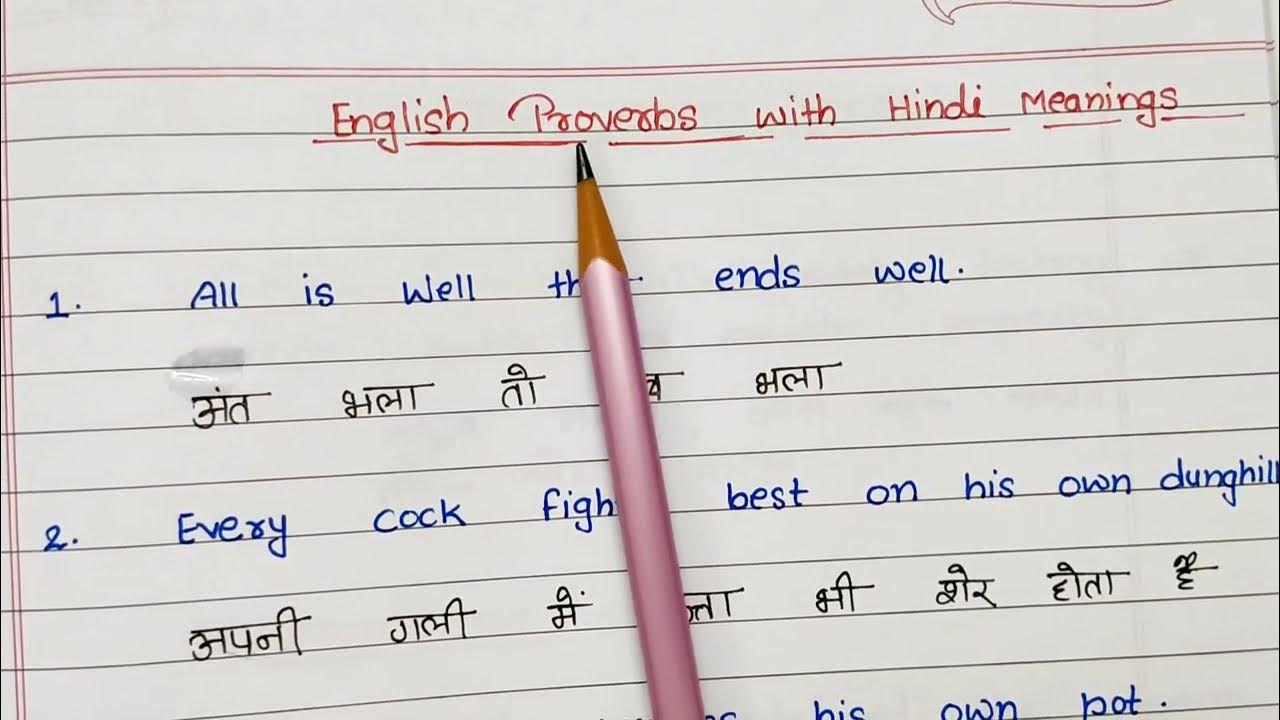 English Proverbs with Hindi Meanings
1. All is well ends well.
अंत भला तो भला
2. Every cock best on his own dunghill
अपनी गली में भी शेर होता है
his own pot.